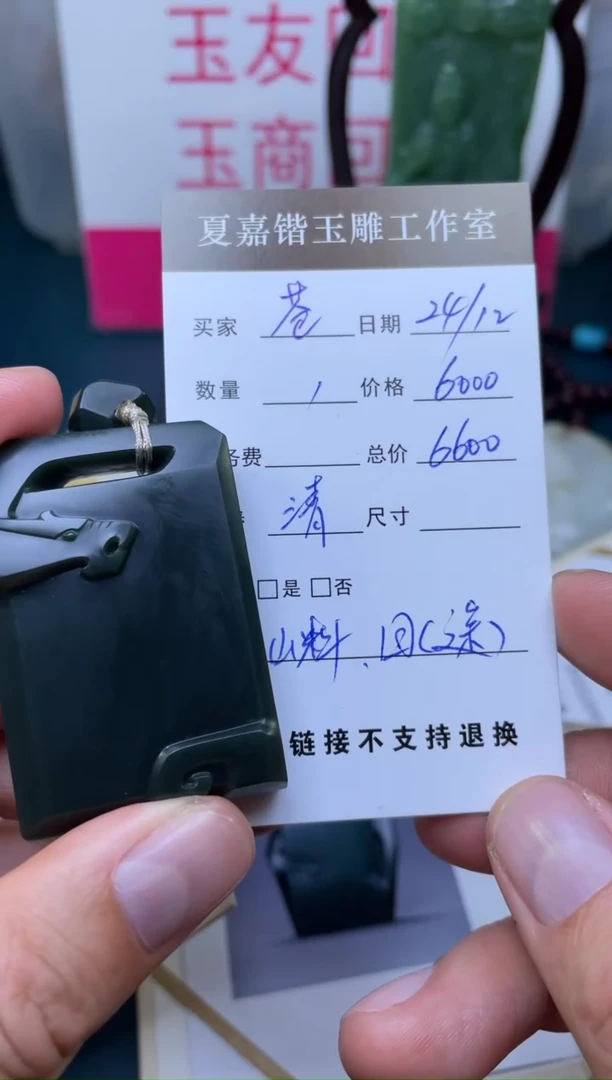 玉友回
玉商回
夏嘉锴玉雕工作室
买家 苍 日期 24/12
数量 1 价格 6000
务费 总价 6600
清 尺寸
□是 □否
山料、回(文亲)
链接不支持退换